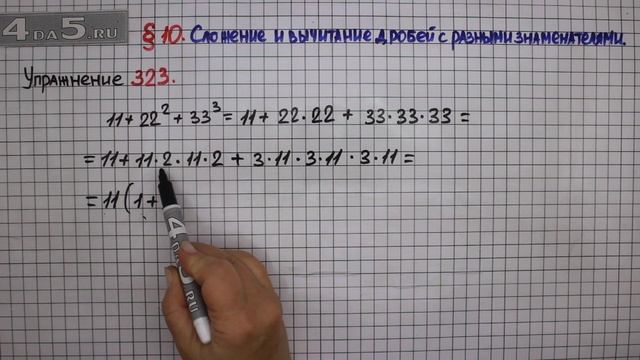 4DA5.RU
§ 10. Сложение и вычитание дробей с разными знаменателями.
Упражнение 323.
11 + 22² + 33³ = 11 + 22 · 22 + 33 · 33 · 33 =
= 11 + 11 · 2 · 11 · 2 + 3 · 11 · 3 · 11 · 3 · 11 =
= 11 ( 1 +
4DA5.RU